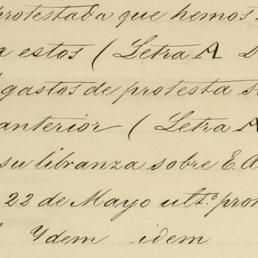 protestada que hemos
a estos ( Letra A D
gastos de protesta s
anterior ( Letra A
su libranza sobre E. A
22 de Mayo ult.º pro
Ydem idem